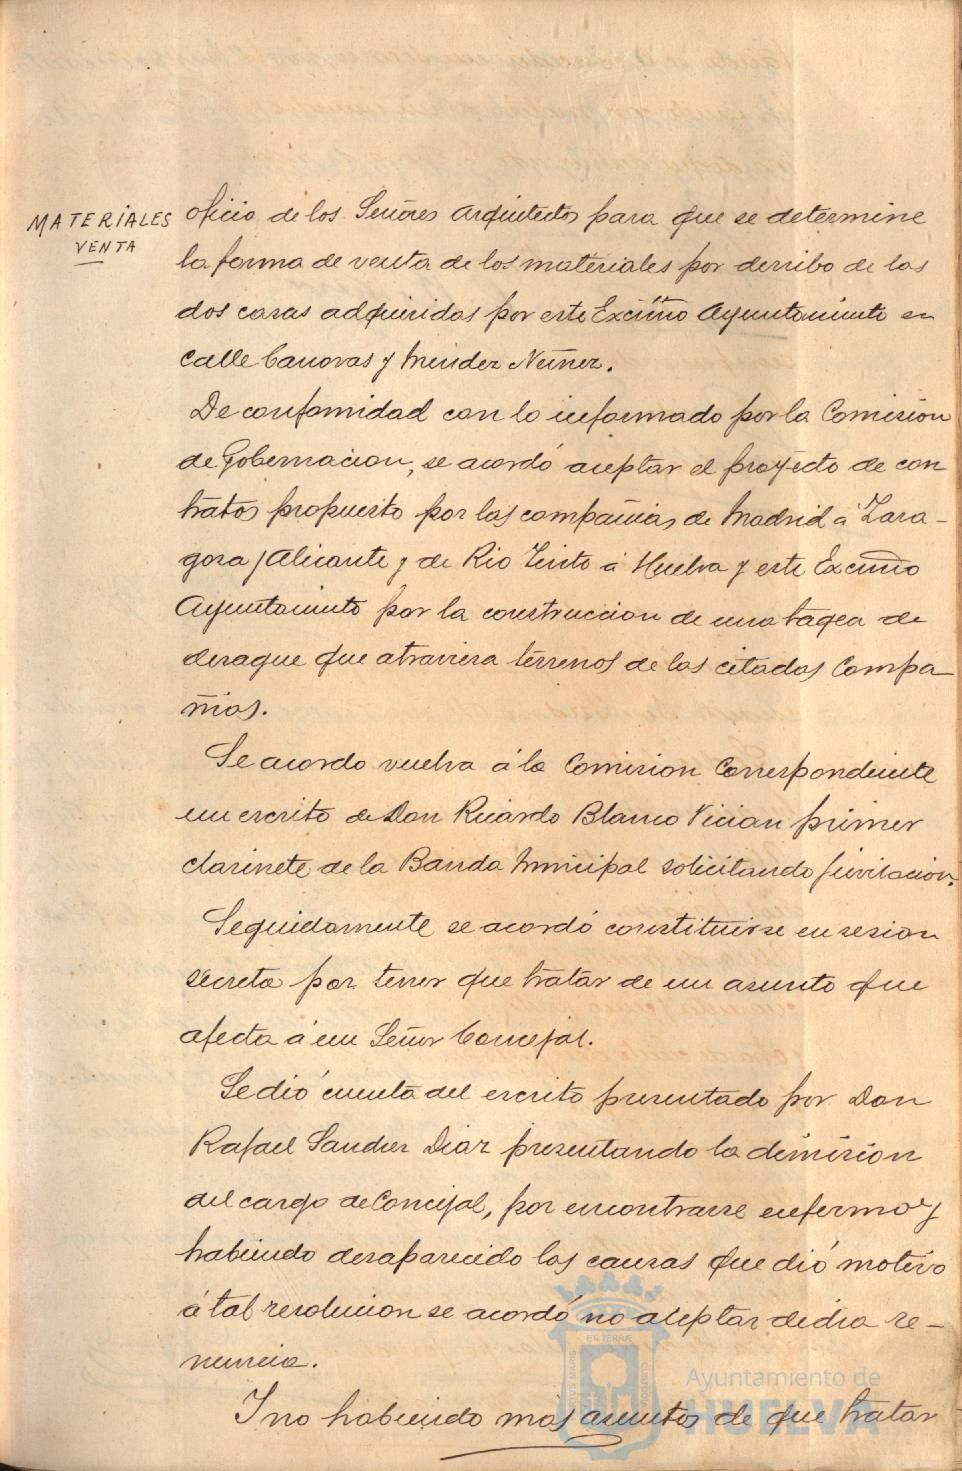 MATERIALES
VENTA
oficio de los Señores Arquitectos para que se determine
la forma de venta de los materiales por derribo de las
dos casas adquiridas por este Excmo Ayuntamiento en
calle Canovas y Mendez Nuñez.
De conformidad con lo informado por la Comision
de Gobernacion, se acordó aceptar el proyecto de con
tratos propuesto por las compañias de Madrid á Zara-
goza y Alicante y de Rio Tinto á Huelva y este Excmo
Ayuntamiento por la construccion de una tagea de
desague que atraviesa terrenos de las citadas Compa-
ñias.
Se acordo vuelva á la Comision Correspondiente
un escrito de Don Ricardo Blanco Vician primer
clarinete de la Banda Municipal solicitando jubilacion.
Seguidamente se acordó constituirse en sesion
secreta por tener que tratar de un asunto que
afecta á un Señor Concejal.
Se dió cuenta del escrito presentado por Don
Rafael Sanchez Diaz presentando la dimision
del cargo de Concejal, por encontrarse enfermo y
habiendo desaparecido las causas que dió motivo
á tal resolucion se acordó no aceptar dicha re-
nuncia.
Y no habiendo mas asuntos de que tratar
Ayuntamiento de
HUELVA